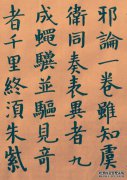 邪論一卷雖知虞
衛同奏表異者九
成蠅驥並驅見奇
者千里終須朱紫